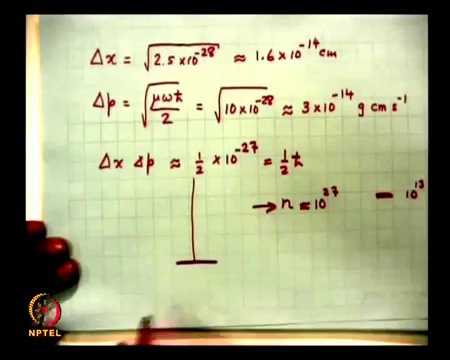 Δx = √2.5×10⁻²⁸ ≈ 1.6×10⁻¹⁴ cm
Δp = √μωħ/2 = √10×10⁻²⁸ ≈ 3×10⁻¹⁴ g cm s⁻¹
Δx Δp ≈ 1/2 × 10⁻²⁷ = 1/2 ħ
→ n ≈ 10²⁷ – 10¹³
NPTEL